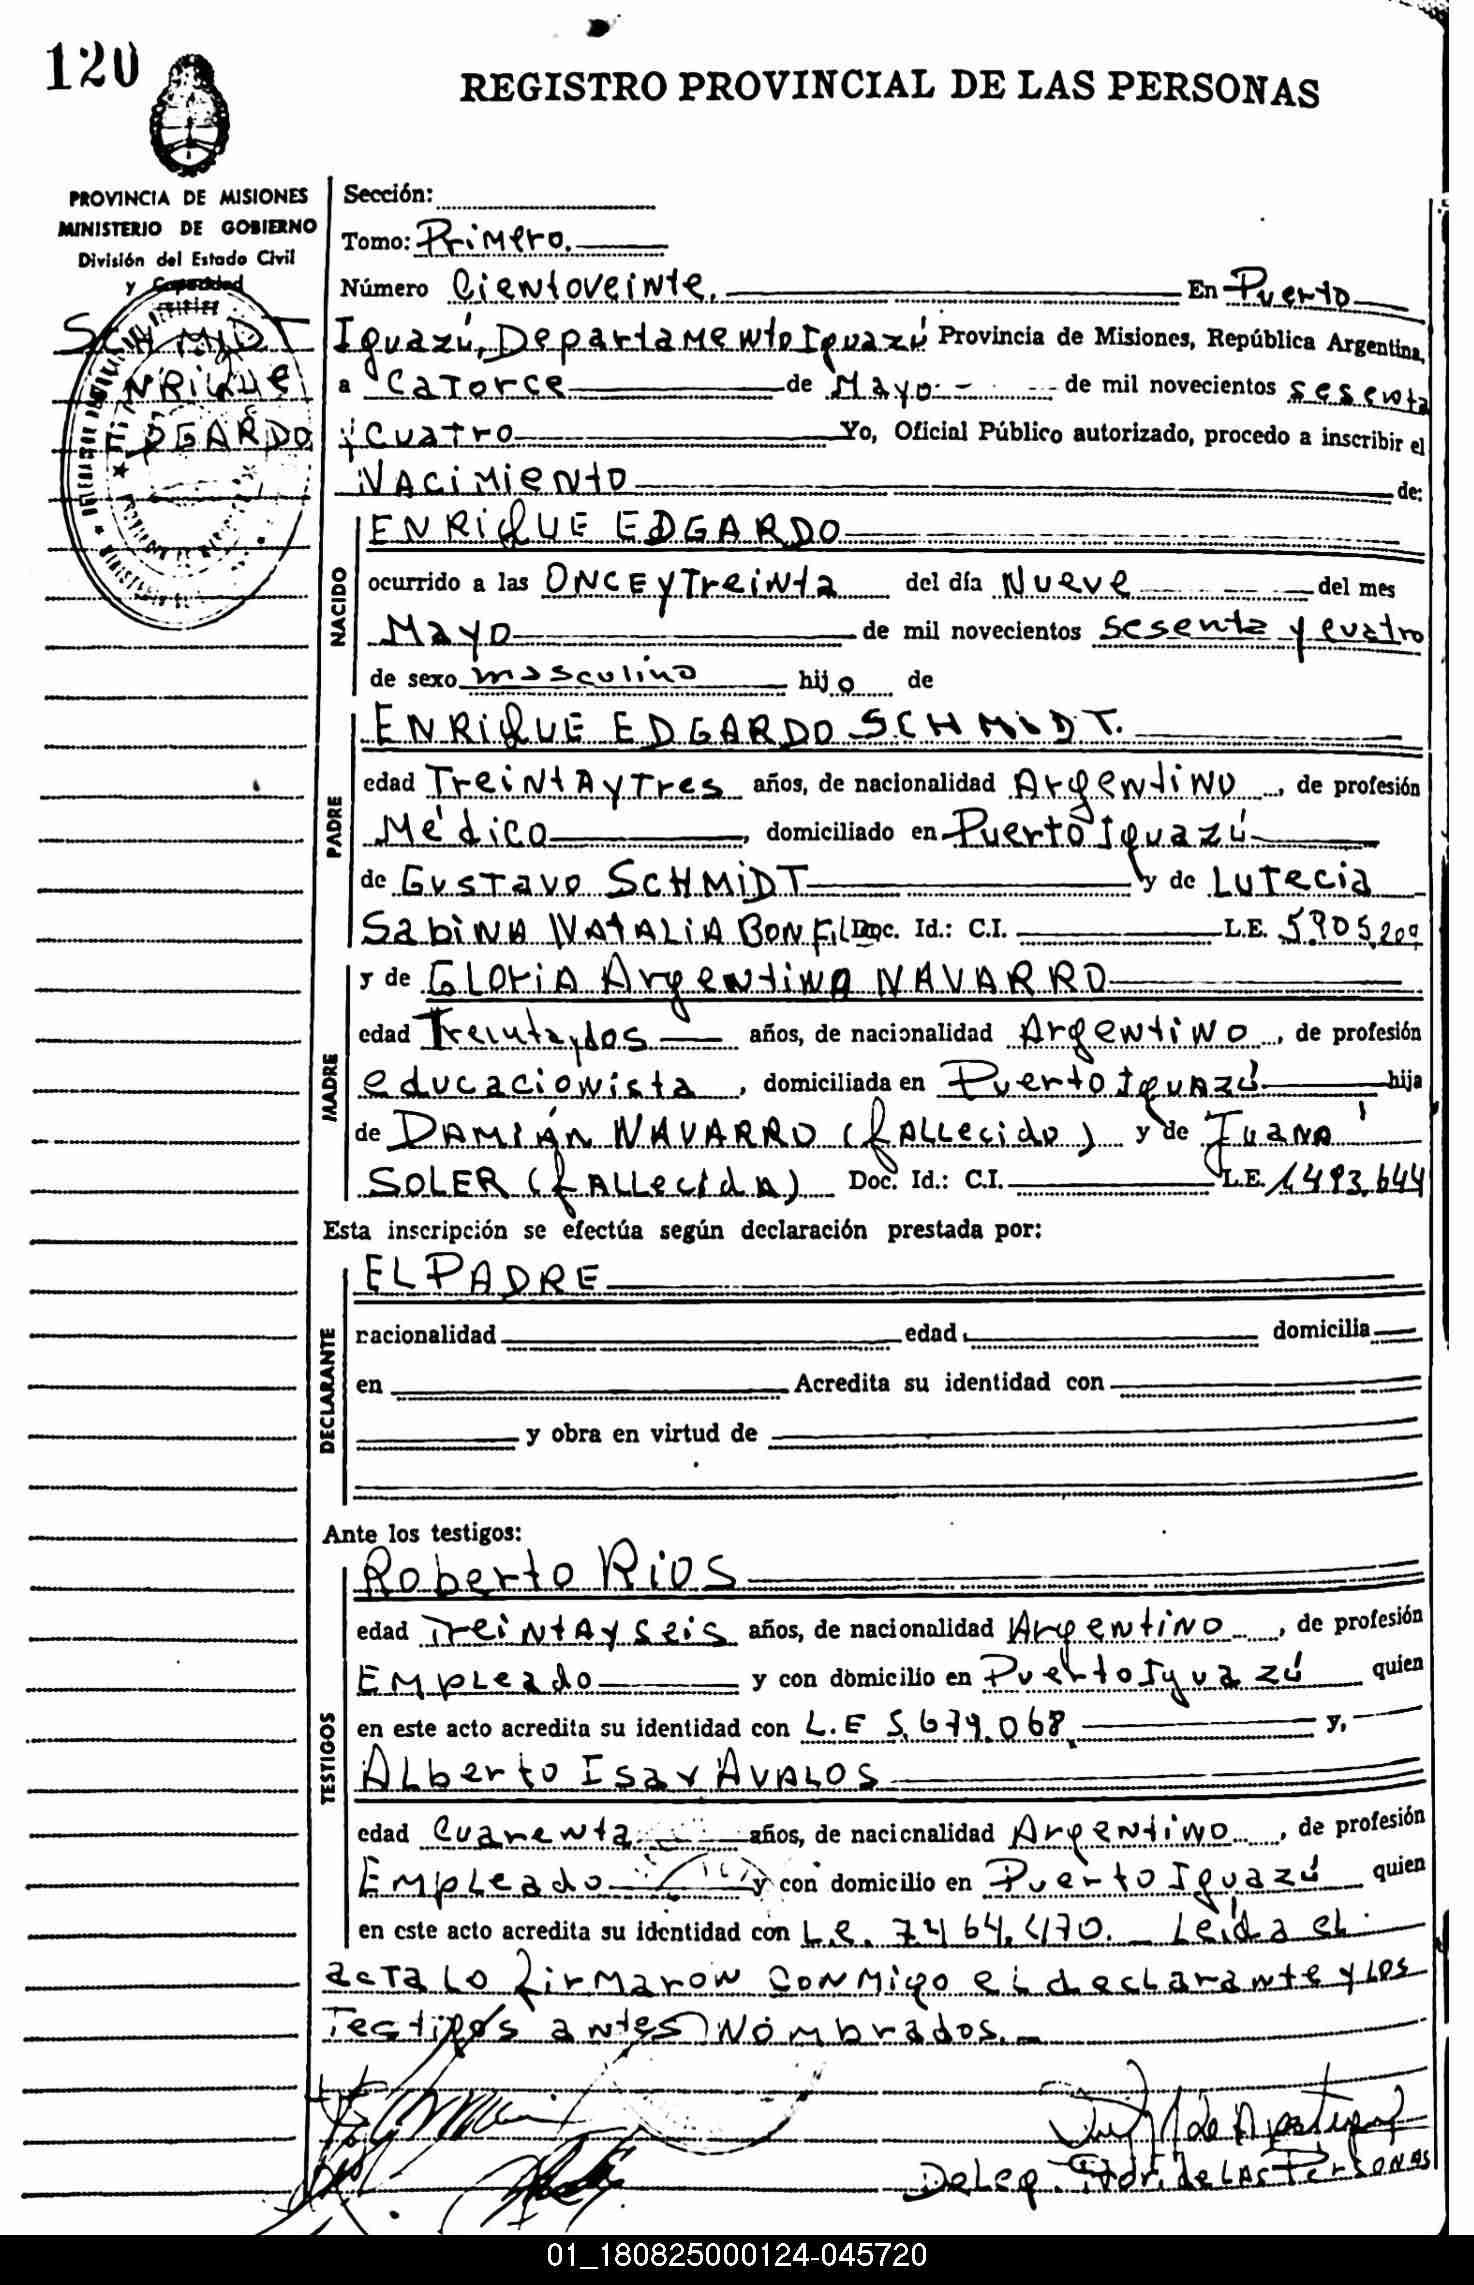 120
REGISTRO PROVINCIAL DE LAS PERSONAS
PROVINCIA DE MISIONES
MINISTERIO DE GOBIERNO
División del Estado Civil
y Capacidad
SCHMIDT
ENRIQUE
EDGARDO
Sección:
Tomo: Primero.
Número Cientoveinte. En Puerto
Iguazú, Departamento Iguazú Provincia de Misiones, República Argentina,
a Catorce de Mayo de mil novecientos sesenta
y cuatro Yo, Oficial Público autorizado, procedo a inscribir el
Nacimiento de:
NACIDO
ENRIQUE EDGARDO
ocurrido a las ONCE y Treinta del día Nueve del mes
Mayo de mil novecientos sesenta y cuatro
de sexo masculino hijo de
PADRE
ENRIQUE EDGARDO SCHMIDT.
edad Treinta y Tres años, de nacionalidad Argentino, de profesión
Médico, domiciliado en Puerto Iguazú
de Gustavo SCHMIDT y de Lutecia
Sabina Natalia Bonfil Doc. Id.: C.I. L.E. 5.905.209
MADRE
y de Gloria Argentina NAVARRO
edad Treinta y dos años, de nacionalidad Argentino, de profesión
educacionista, domiciliada en Puerto Iguazú hija
de DAMIÁN NAVARRO (fallecido) y de Juana
SOLER (fallecida) Doc. Id.: C.I. L.E. 1.493.644
Esta inscripción se efectúa según declaración prestada por:
DECLARANTE
EL PADRE
nacionalidad edad domicilia
en Acredita su identidad con
y obra en virtud de
Ante los testigos:
TESTIGOS
Roberto Rios
edad Treinta y seis años, de nacionalidad Argentino, de profesión
Empleado y con domicilio en Puerto Iguazú quien
en este acto acredita su identidad con L.E 5.679.068. y,
Alberto Isar AVALOS
edad Cuarenta años, de nacionalidad Argentino, de profesión
Empleado y con domicilio en Puerto Iguazú quien
en este acto acredita su identidad con L.e. 7.464.470. Leída el
acta lo firmaron conmigo el declarante y los
Testigos antes Nombrados.
Deleg. Prov. de Las Personas
01_180825000124-045720